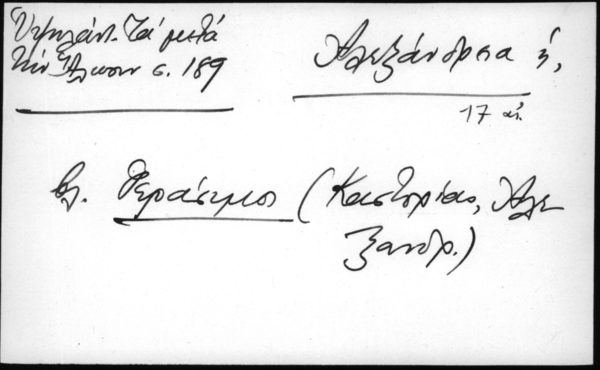 Ὑψηλάντ. Τά μετά
τήν Ἅλωσιν σ. 189
Ἀλεξάνδρεια ἡ,
17 αἰ.
βλ. Γεράσιμος (Καστορίας, Ἀλε
ξανδρ.)